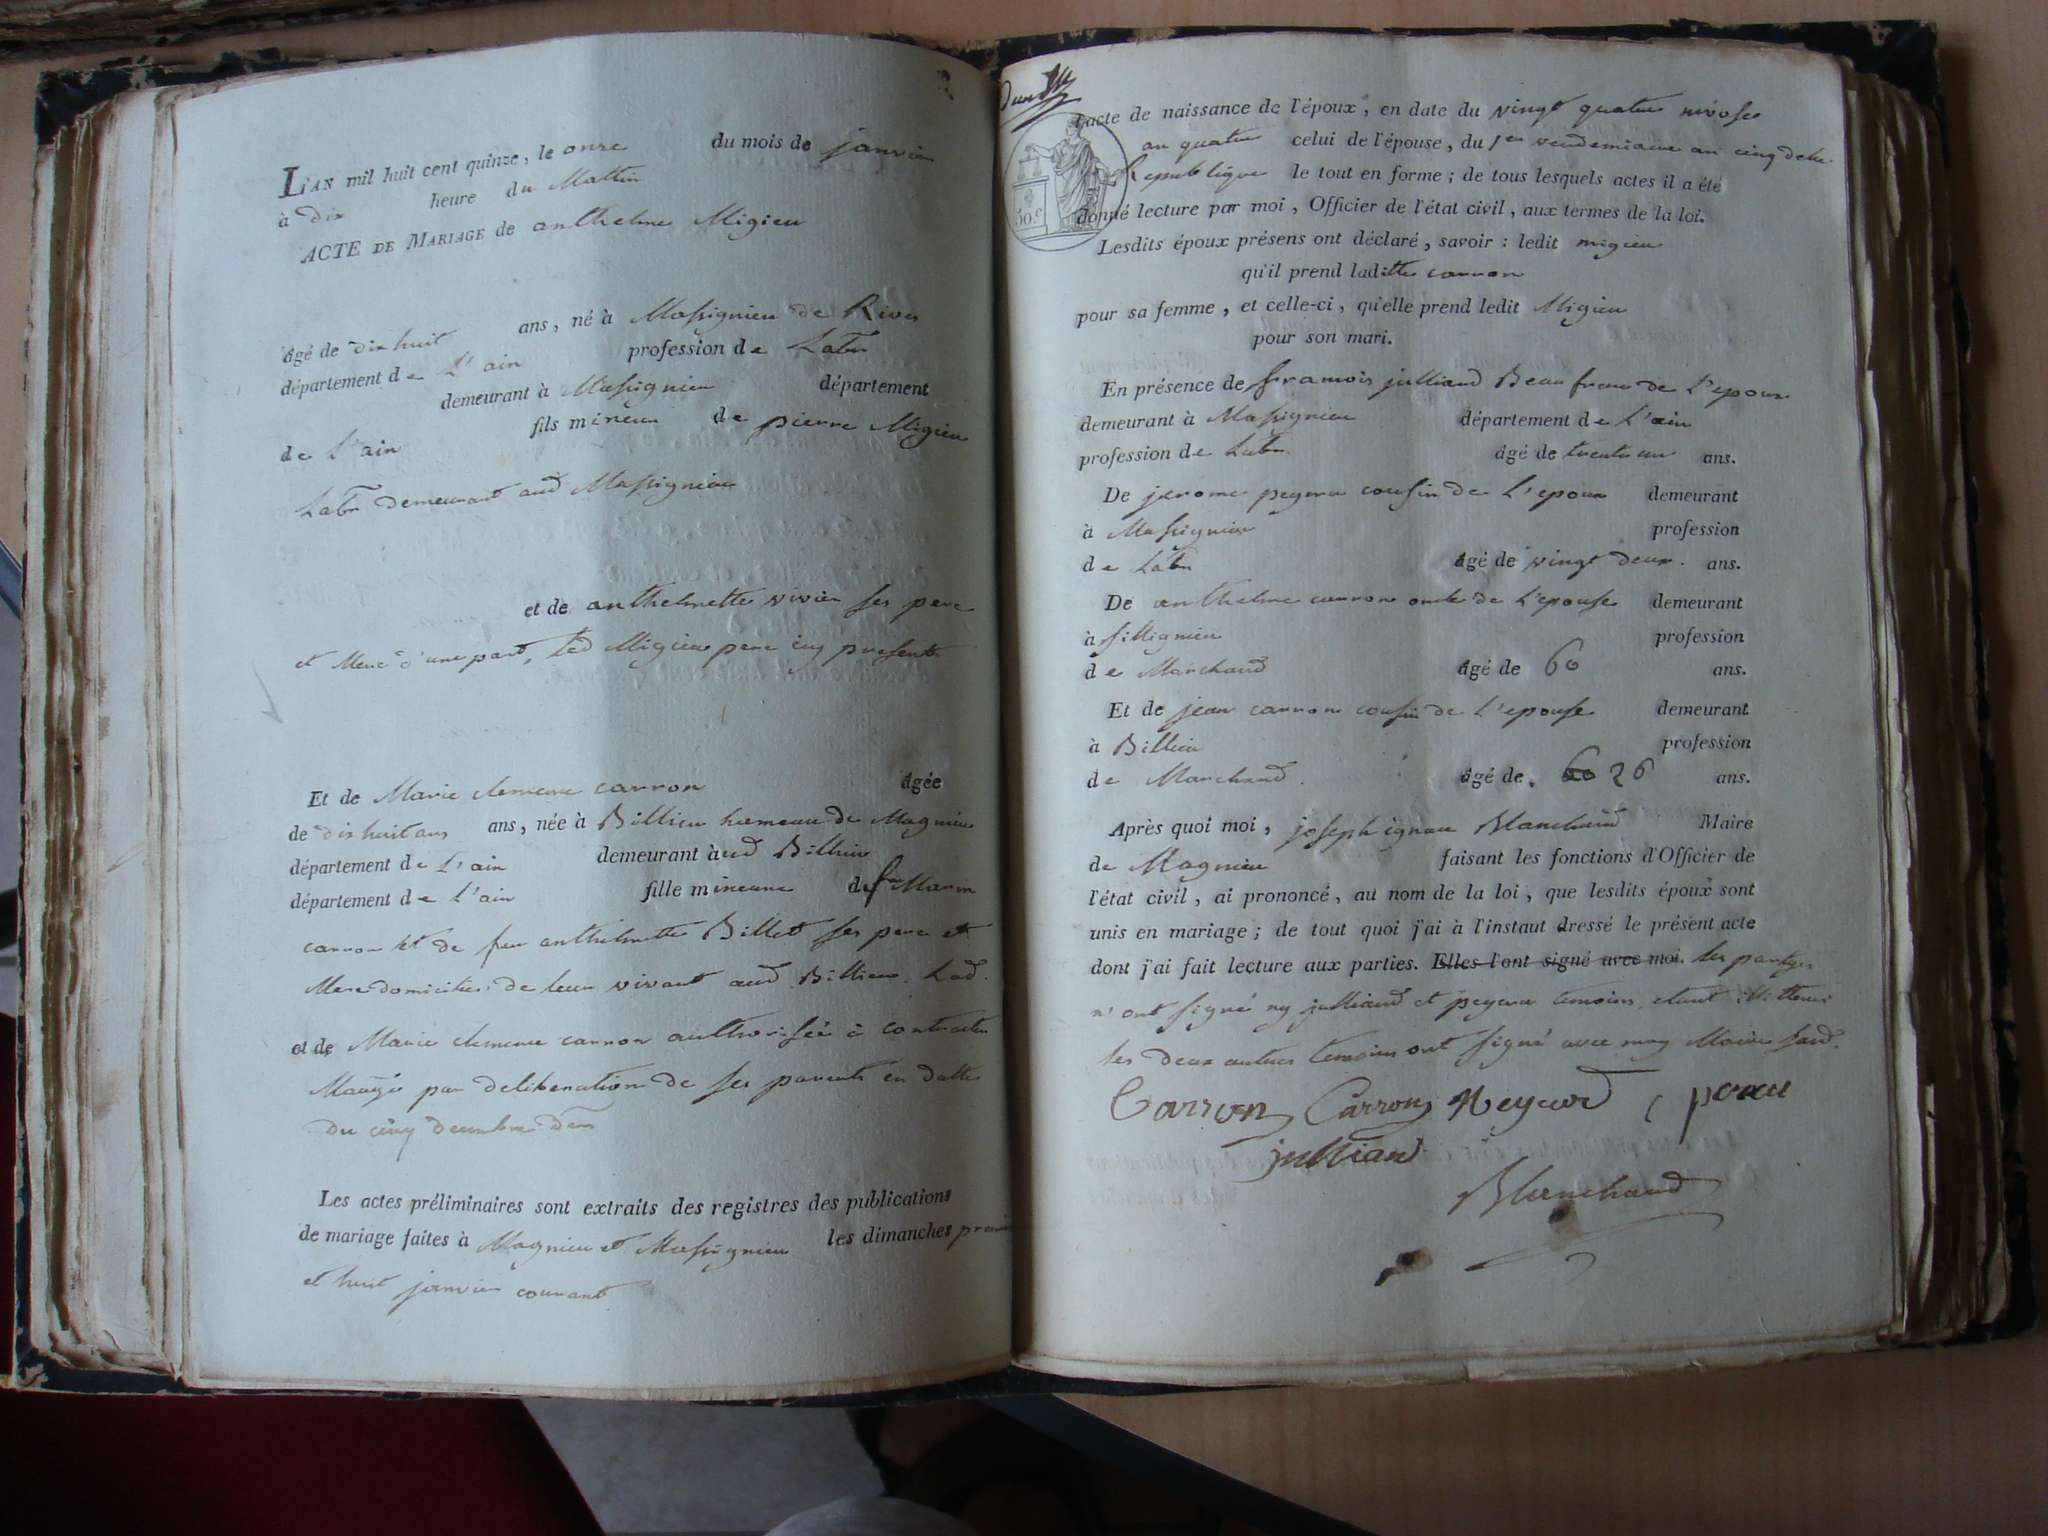 L'AN mil huit cent quinze, le onze du mois de janvier
à dix heure du Mattin
ACTE DE MARIAGE de anthelme Migieu
âgé de dix huit ans, né à Massignieu de Rives
département de L'ain profession de Labr
demeurant à Massignieu département
de L'ain fils mineur de pierre Migieu
Labr demeurant aud Massignieu
et de anthelmette vivier ses pere
et Mere d'une part, led Migieu pere icy present
Et de Marie clemence carron âgée
de dix huit ans ans, née à Billieu hameau de Magnieu
département de L'ain demeurant àud Billieu
département de L'ain fille mineure de feu Marin
carron et de feu anthelmette Billet ses pere et
Mere domiciliés de leur vivant aud Billieu. Lad.
et de Marie clemence carron authorisée à contracter
Mariage par deliberation de ses parents en datte
du cinq decembre der
Les actes préliminaires sont extraits des registres des publications
de mariage faites à Magnieu et Massignieu les dimanches premier
et huit janvier courant
l'acte de naissance de l'époux, en date du vingt quatre nivose
an quatre celui de l'épouse, du 1er vendemiaire an cinq de la
Republique le tout en forme; de tous lesquels actes il a été
donné lecture par moi, Officier de l'état civil, aux termes de la loi.
50.c
Lesdits époux présens ont déclaré, savoir: ledit migieu
qu'il prend laditte carron
pour sa femme, et celle-ci, qu'elle prend ledit Migieu
pour son mari.
En présence de francois julliand Beau frere de L'epoux
demeurant à Massignieu département de L'ain
profession de Labr. âgé de trente un ans.
De jerome peyera cousin de L'epoux demeurant
à Massignieu profession
de Labr âgé de vingt deux. ans.
De anthelme carron oncle de L'epouse demeurant
à sillignieu profession
de Marchand âgé de 60 ans.
Et de jean carron cousin de L'epouse demeurant
à Billieu profession
de Marchand. âgé de. 60 26 ans.
Après quoi moi, joseph ignace Blanchard Maire
de Magnieu faisant les fonctions d'Officier de
l'état civil, ai prononcé, au nom de la loi, que lesdits époux sont
unis en mariage; de tout quoi j'ai à l'instant dressé le présent acte
dont j'ai fait lecture aux parties. Elles l'ont signé avec moi. les partyes
n'ont signé ny julliand et peyera temoins etant illitterés
les deux autres temoins ont signé avec moy Maire
Carron Carron
julliand
Blanchard